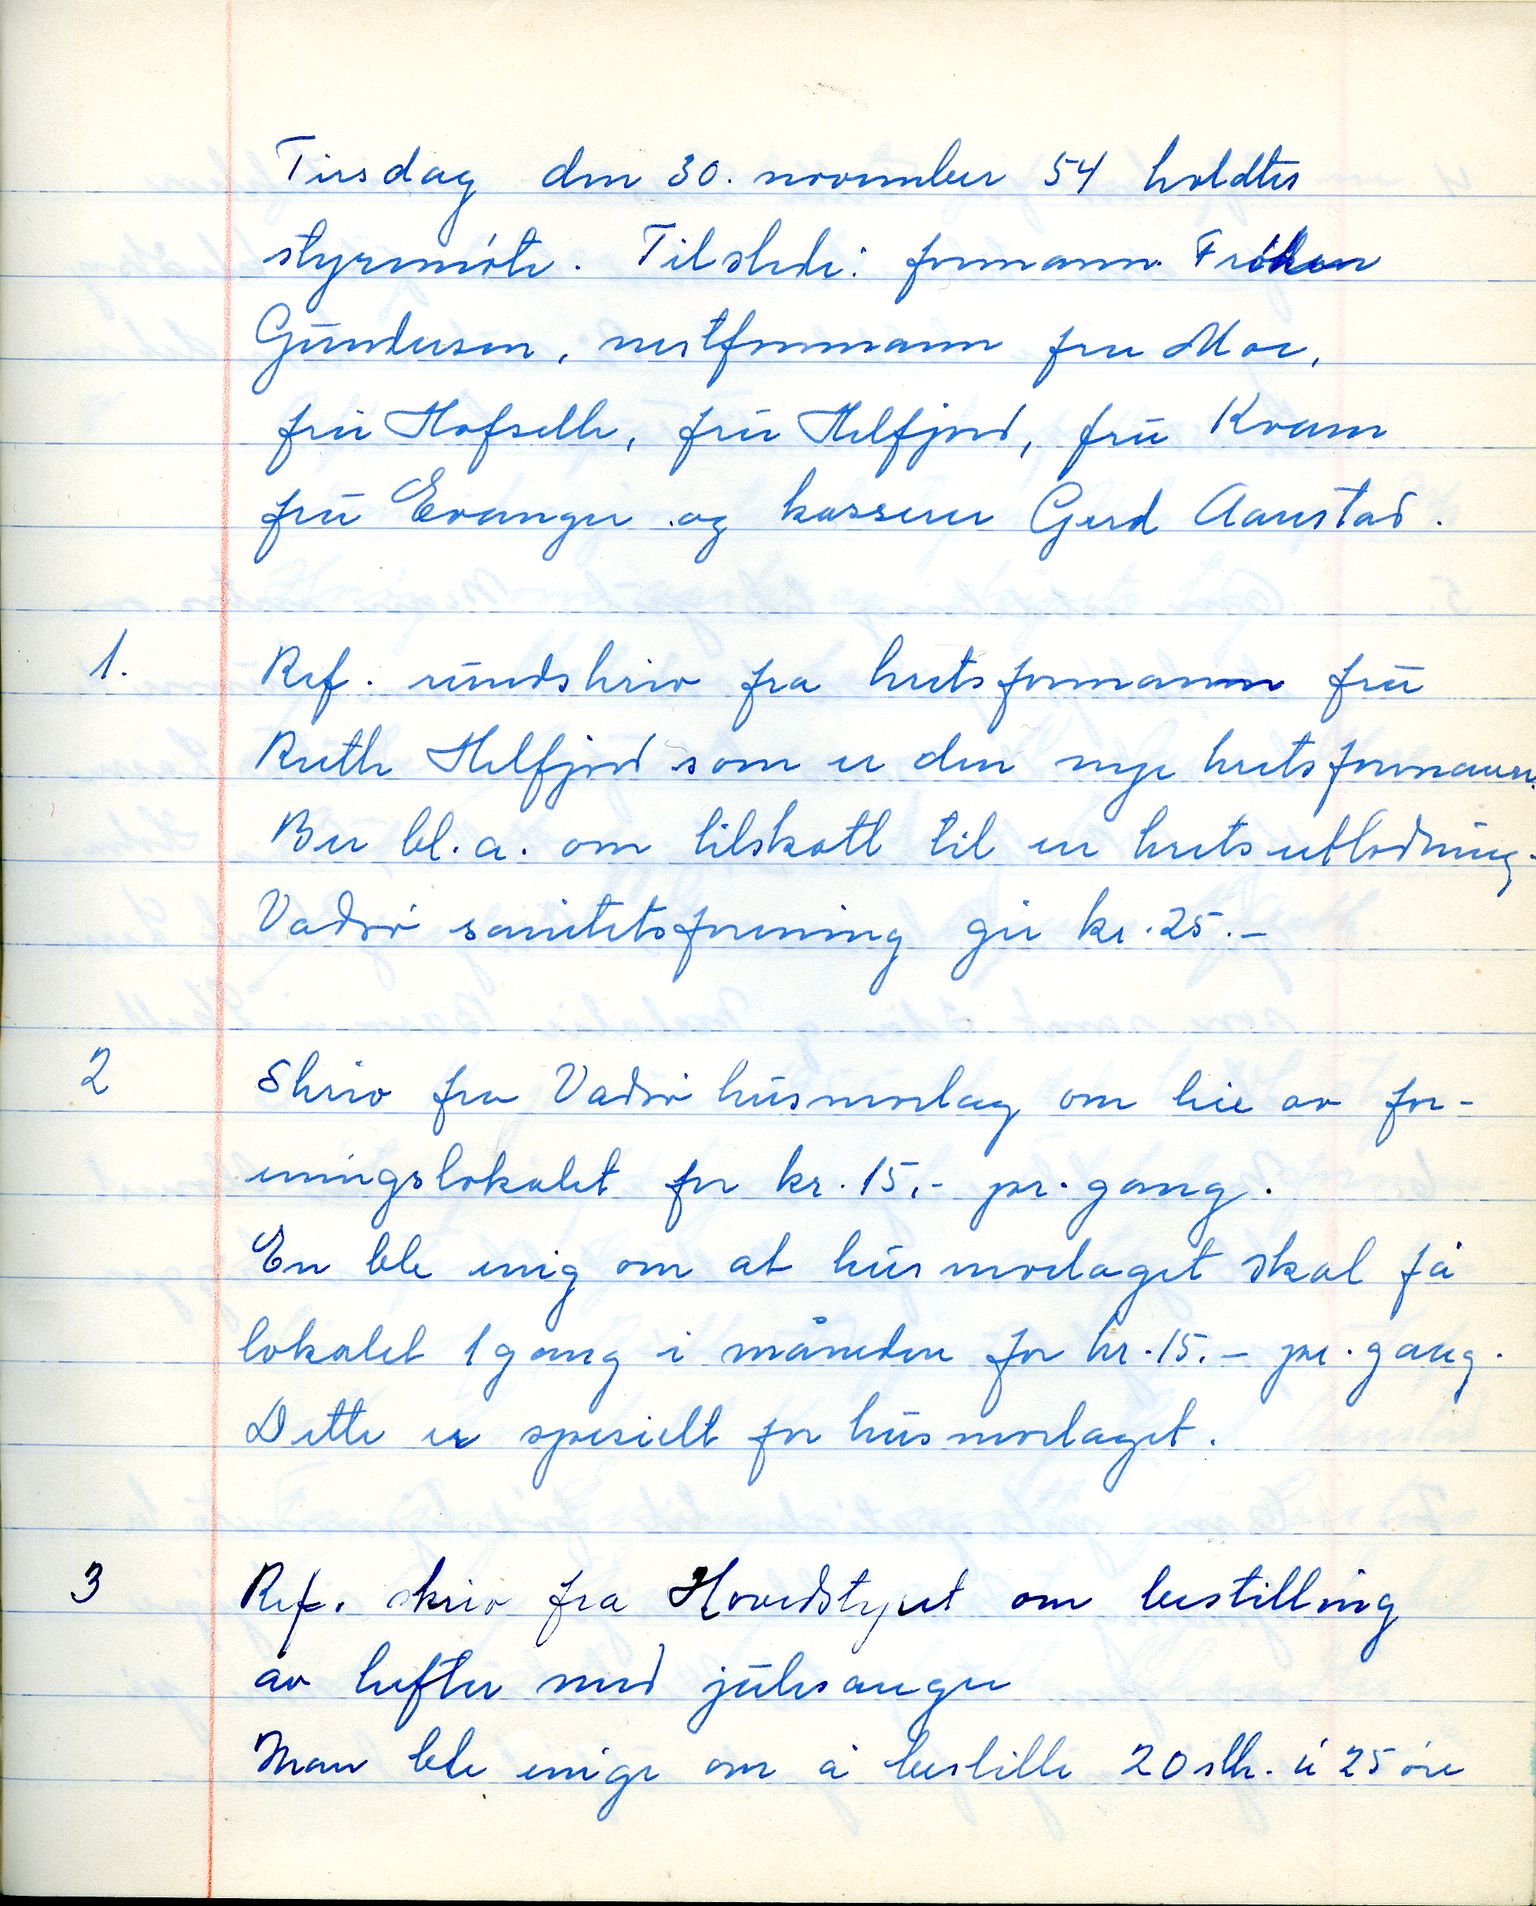 Tirsdag den 30. november 54 holdtes
styremøte. Tilstede: formann Frøken
Gundersen, nestformann fru Moe,
fru Hofseth, fru Helfjord, fru Kvam
fru Evanger og kasserer Gerd Aarstad.
1. Ref. rundskriv fra kretsformann fru
Ruth Helfjord som er den nye kretsformann.
Ber bl.a. om tilskott til en kretsutlodning.
Vadsø sanitetsforening gir kr. 25.-
2 Skriv fra Vadsø husmorlag om leie av for-
eningslokalet for kr. 15,- pr. gang.
En ble enig om at husmorlaget skal få
lokalet 1 gang i måneden for kr. 15.- pr. gang.
Dette er spesielt for husmorlaget.
3 Ref. skriv fra Hovedstyret om bestilling
av hefter med julesanger
Man ble enige om å bestille 20 stk. á 25 øre